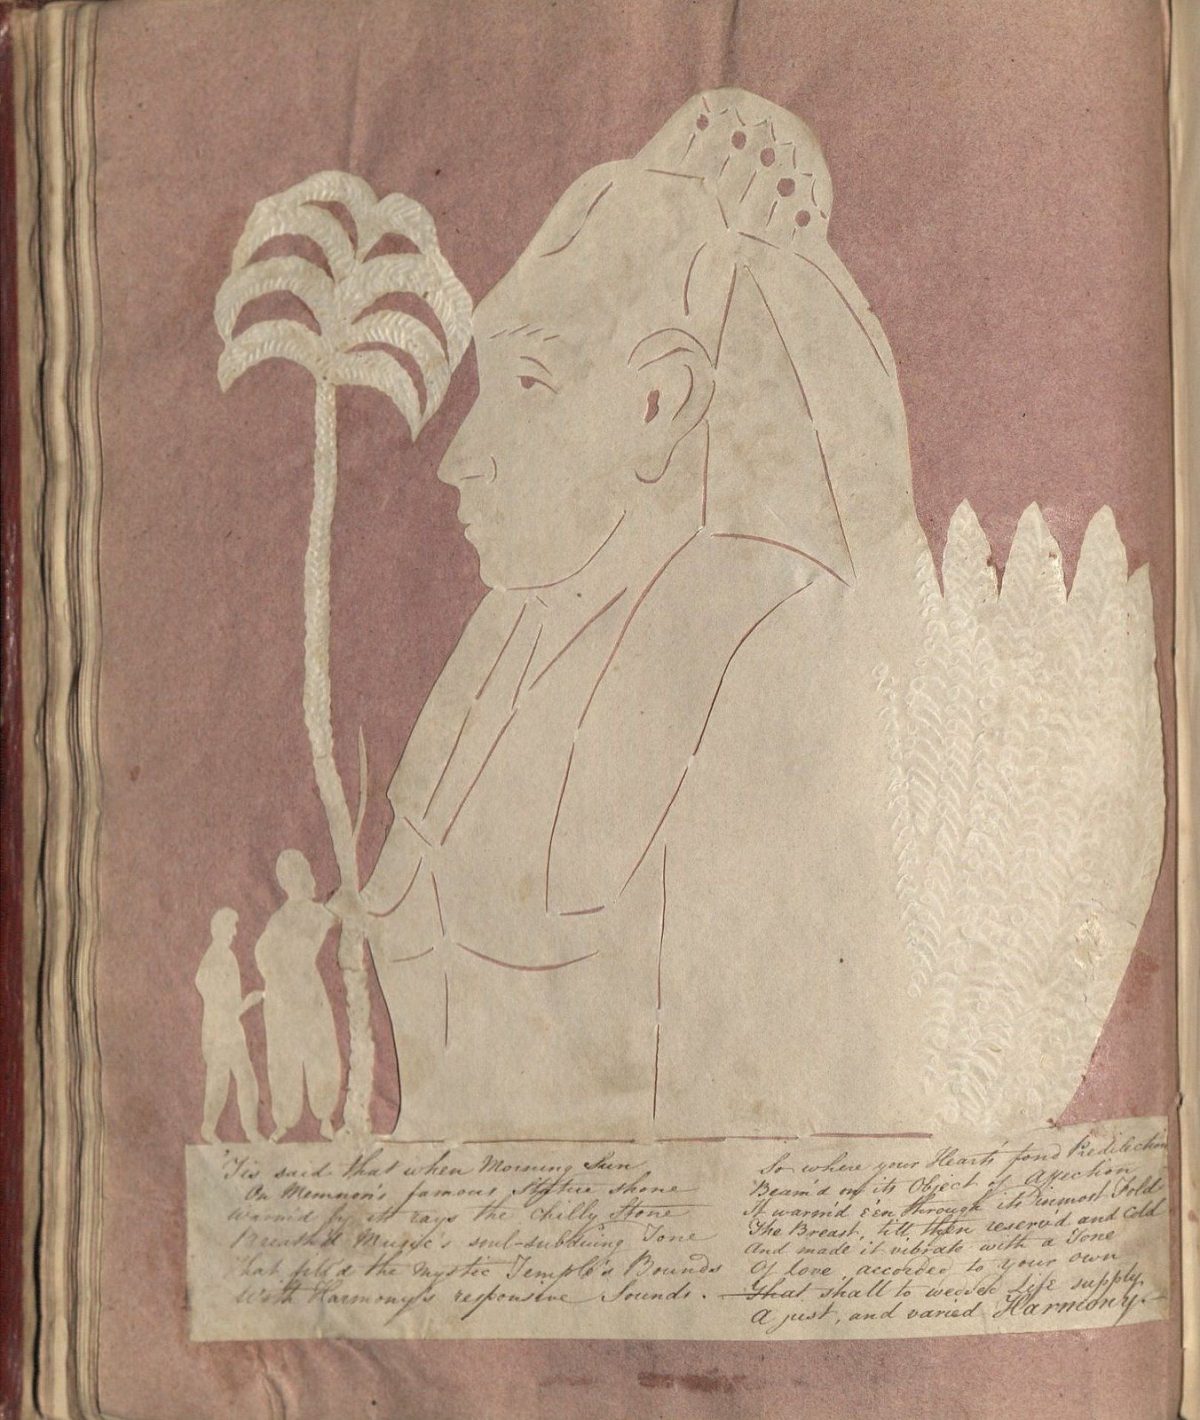 'Tis said that when Morning Sun
On Memnon's famous Statue shone
Warm'd by its rays the chilly Stone
Breath'd Music's soul-subduing Tone
That fill'd the mystic Temple's Bounds
With Harmony's responsive Sounds. —
So where your Heart's fond Predilection
Beam'd on its Object of Affection
It warm'd e'en through its inmost Fold
The Breast, till then reserv'd and cold
And made it vibrate with a Tone
Of love, accorded to your own
That shall to wedded Life supply
A just, and varied Harmony. —